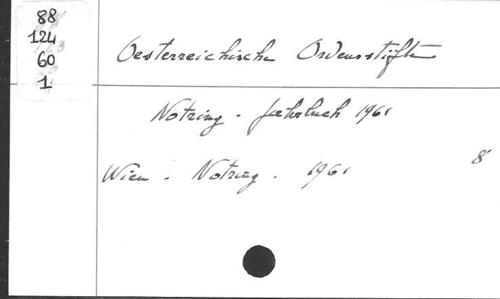 88
124
60
1
Oesterreichische Ordensstifte
Notring - Jahrbuch 1961
Wien - Notring - 1961
8°